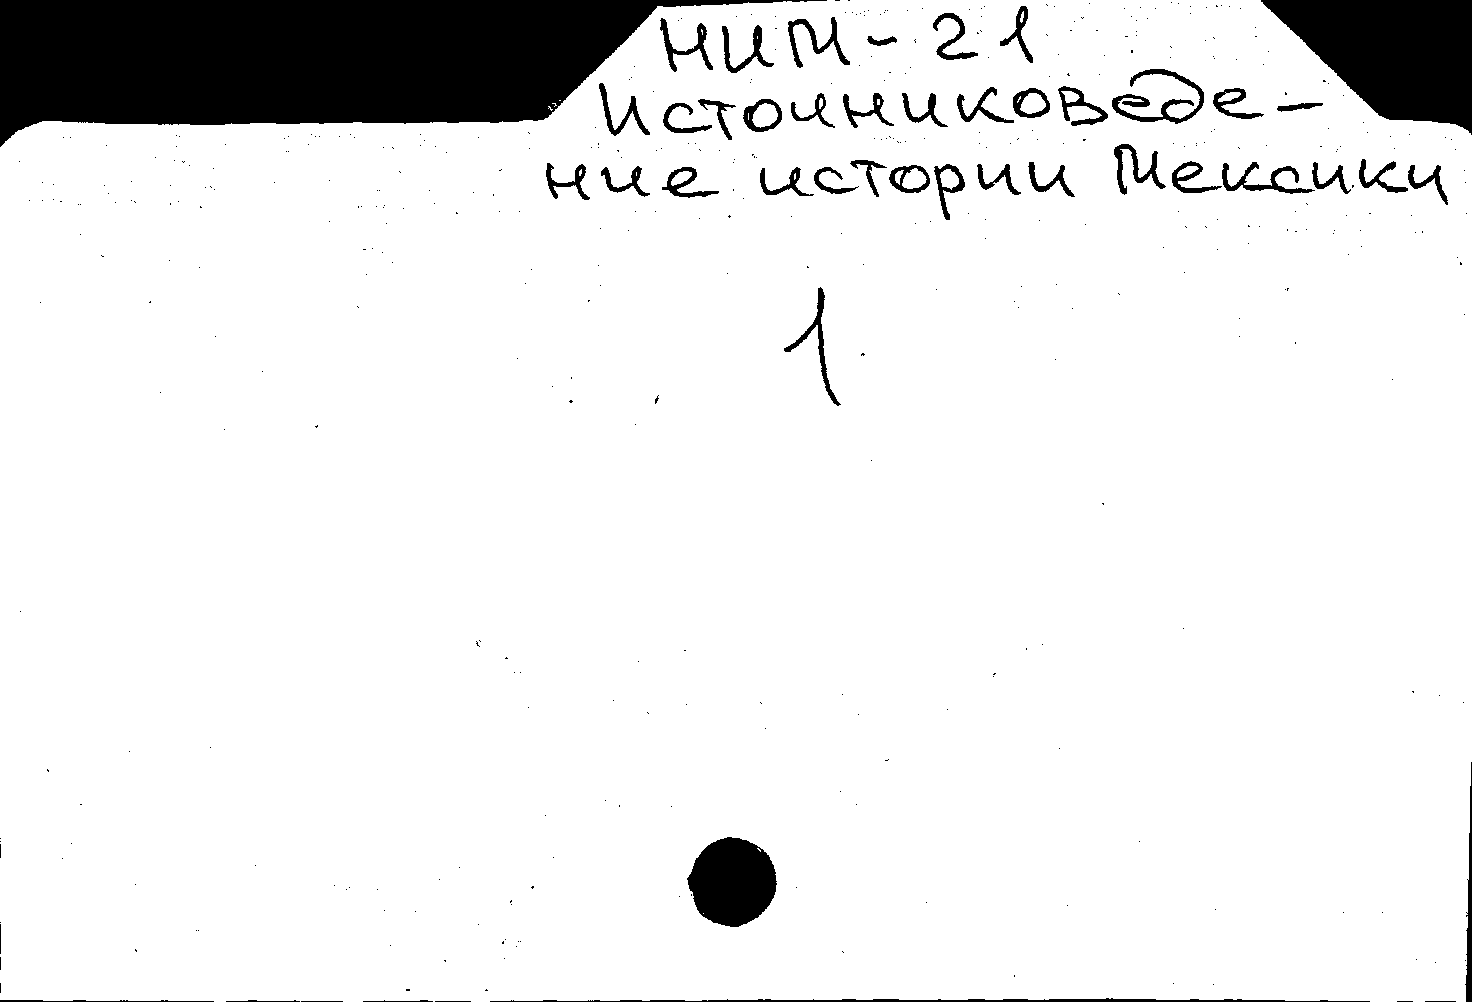 НИМ - 21
Источниковеде-
ние истории Мексики
1